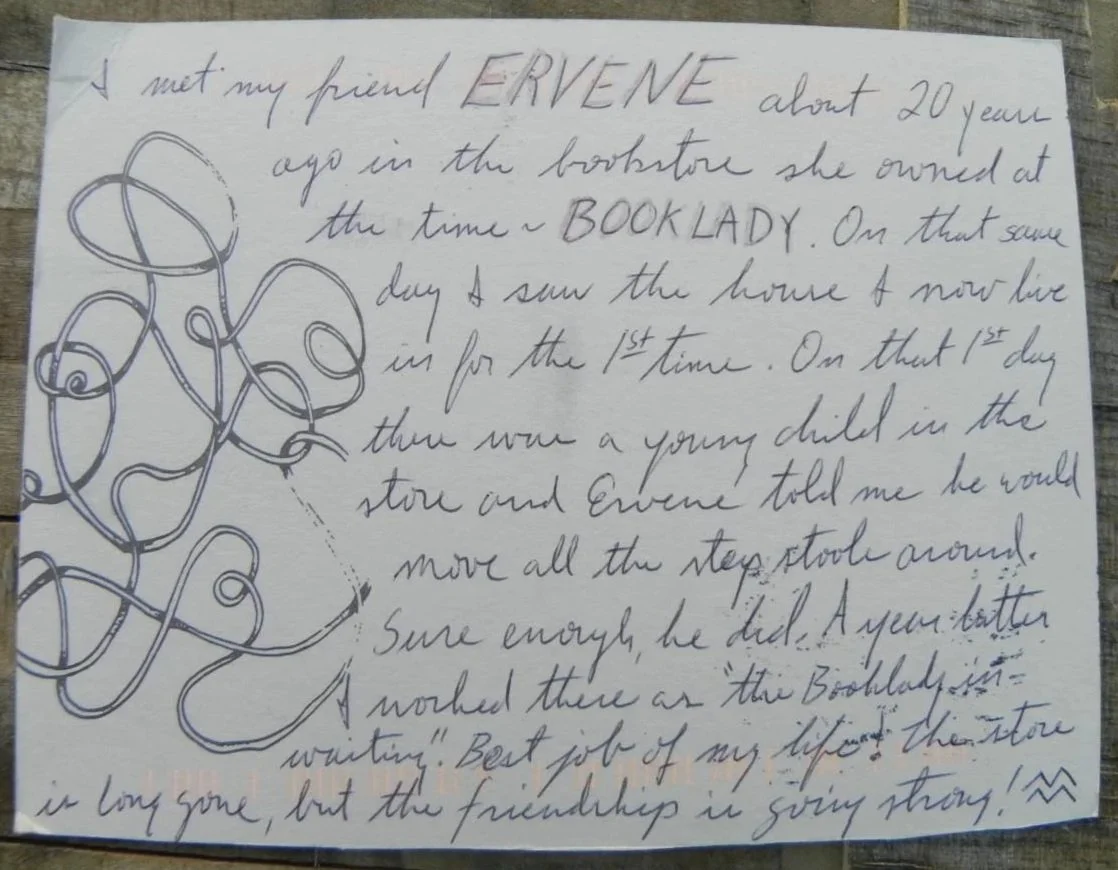 I met my friend ERVENE about 20 years
ago in the bookstore she owned at
the time ~ BOOKLADY. On that same
day I saw the house I now live
in for the 1st time. On that 1st day
there was a young child in the
store and Ervene told me he would
move all the step stools around.
Sure enough, he did. A year latter
I worked there as "the Booklady in-
waiting". Best job of my life! The store
is long gone, but the friendship is going strong!